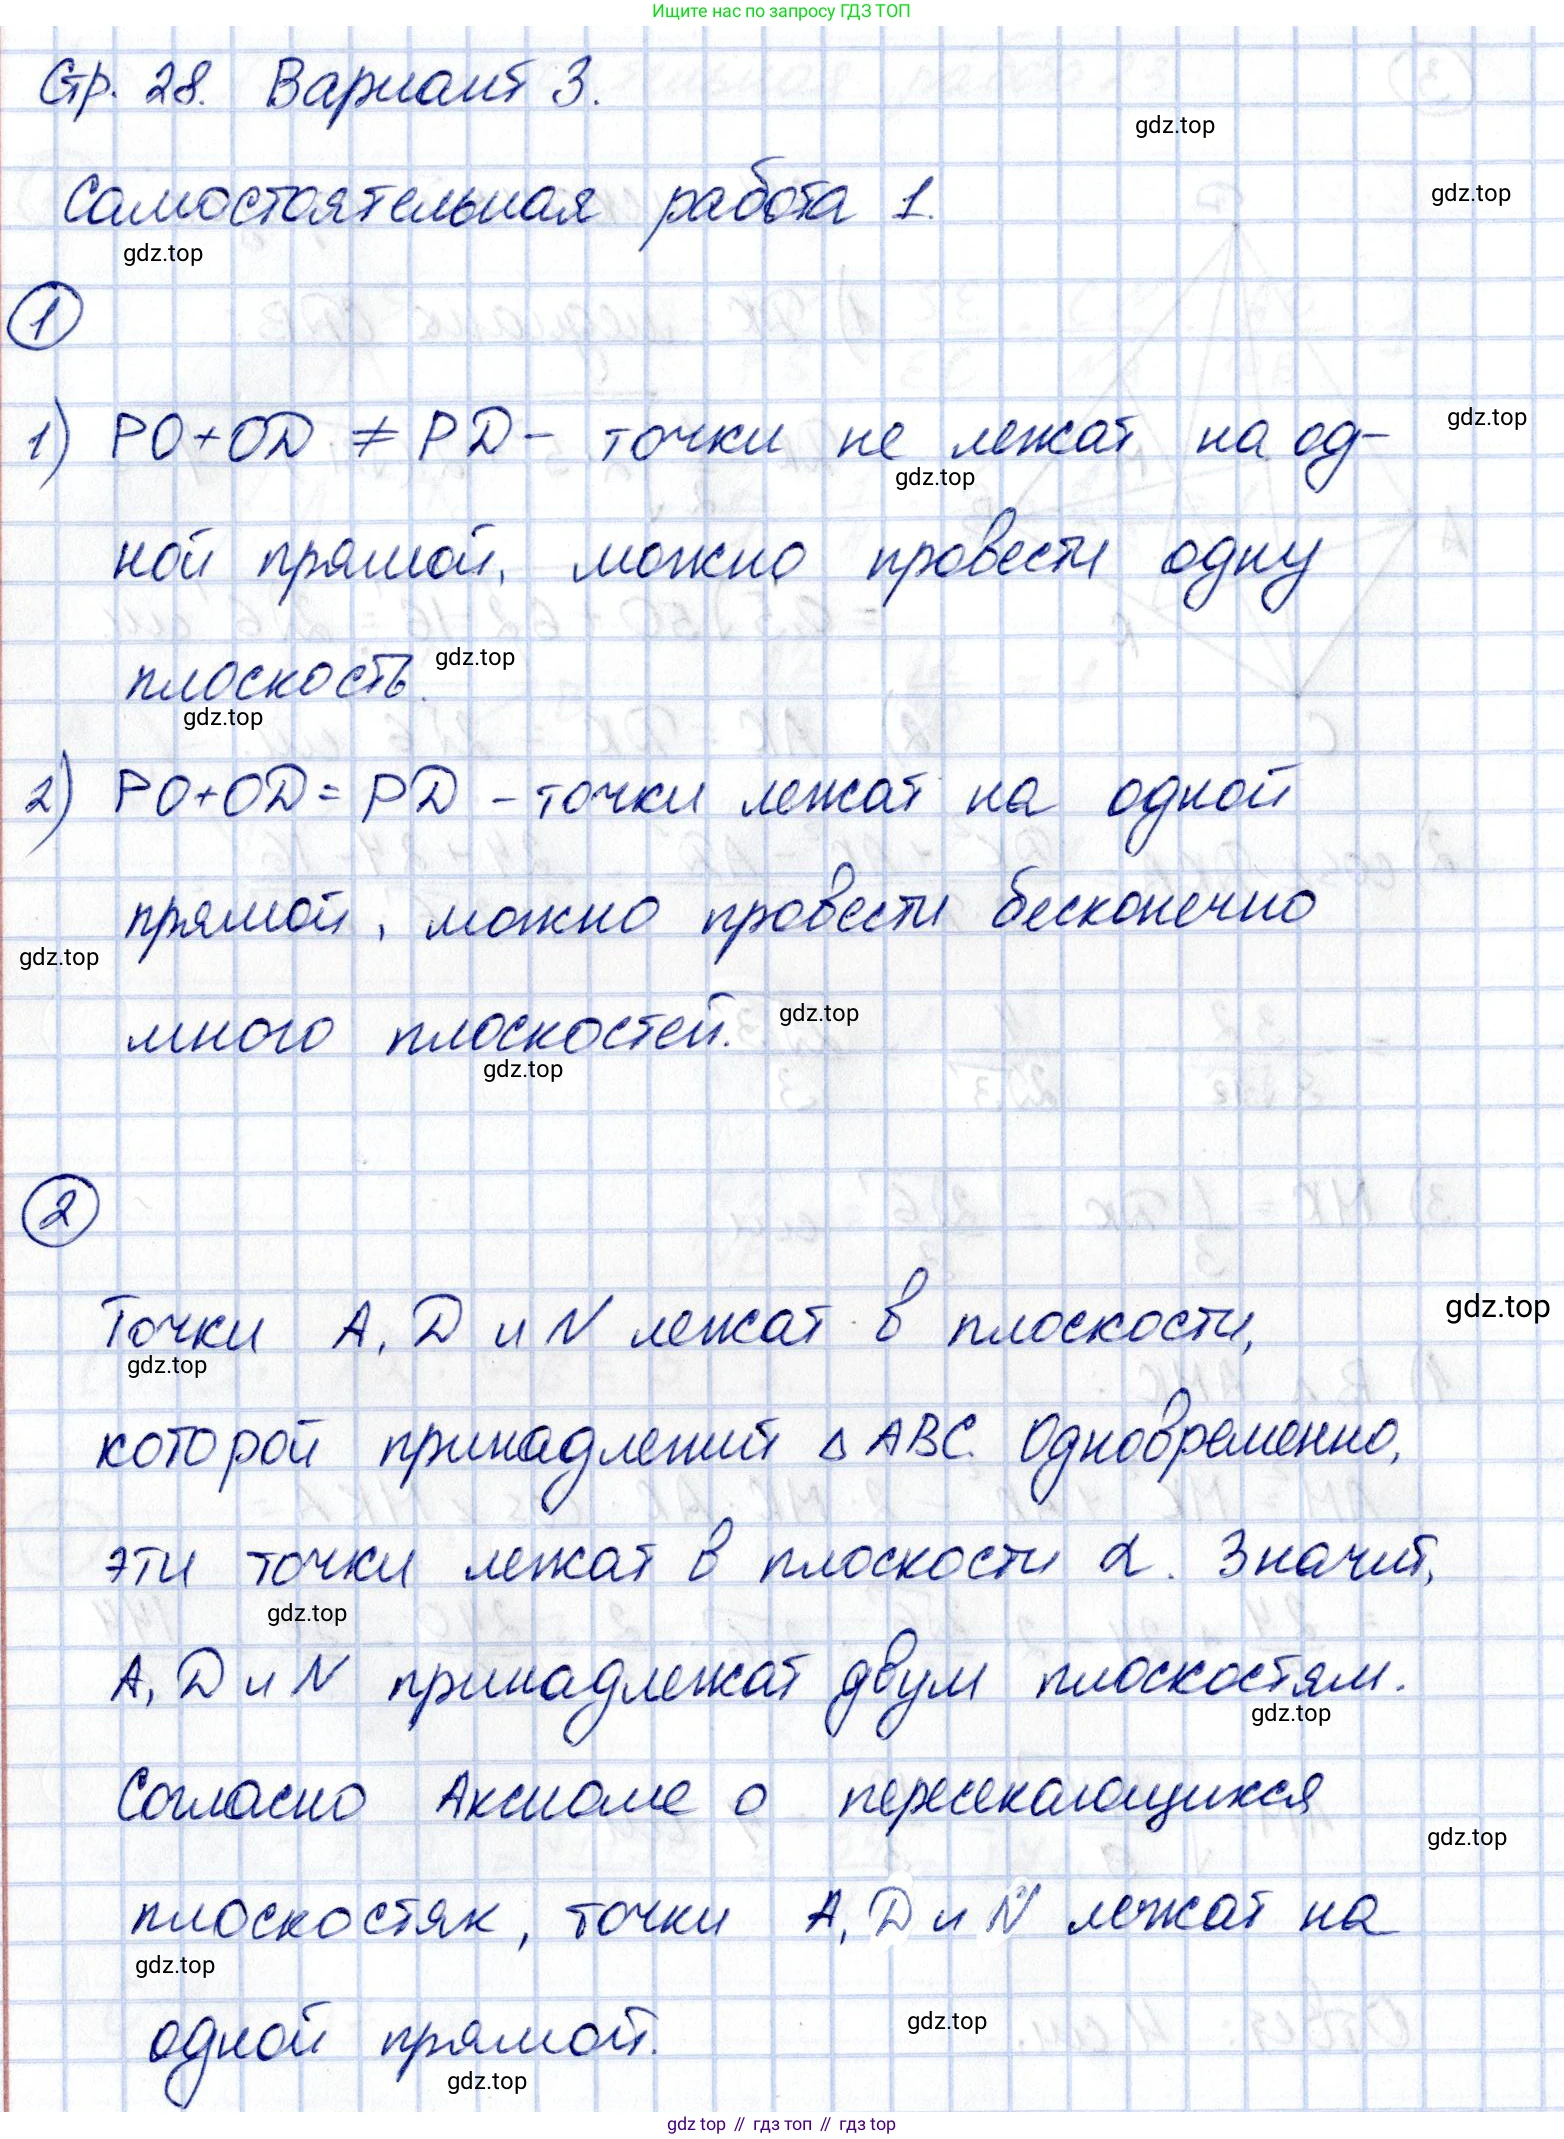 Ищите нас по запросу ГДЗ ТОП
Стр. 28. Вариант 3.
gdz.top
Самостоятельная работа 1.
gdz.top
gdz.top
1
1) PO+OD ≠ PD - точки не лежат на од-
gdz.top
gdz.top
ной прямой, можно провести одну
плоскость.
gdz.top
gdz.top
2) PO+OD = PD - точки лежат на одной
gdz.top
прямой, можно провести бесконечно
gdz.top
много плоскостей.
gdz.top
gdz.top
2
Точки A, D и N лежат в плоскости,
gdz.top
gdz.top
которой принадлежит △ ABC. Одновременно,
эти точки лежат в плоскости α. Значит,
gdz.top
A, D и N принадлежат двум плоскостям.
gdz.top
Согласно Аксиоме о пересекающихся
gdz.top
плоскостях, точки A, D и N лежат на
gdz.top
одной прямой.
gdz.top
gdz.top
gdz top // гдз топ // гдз top